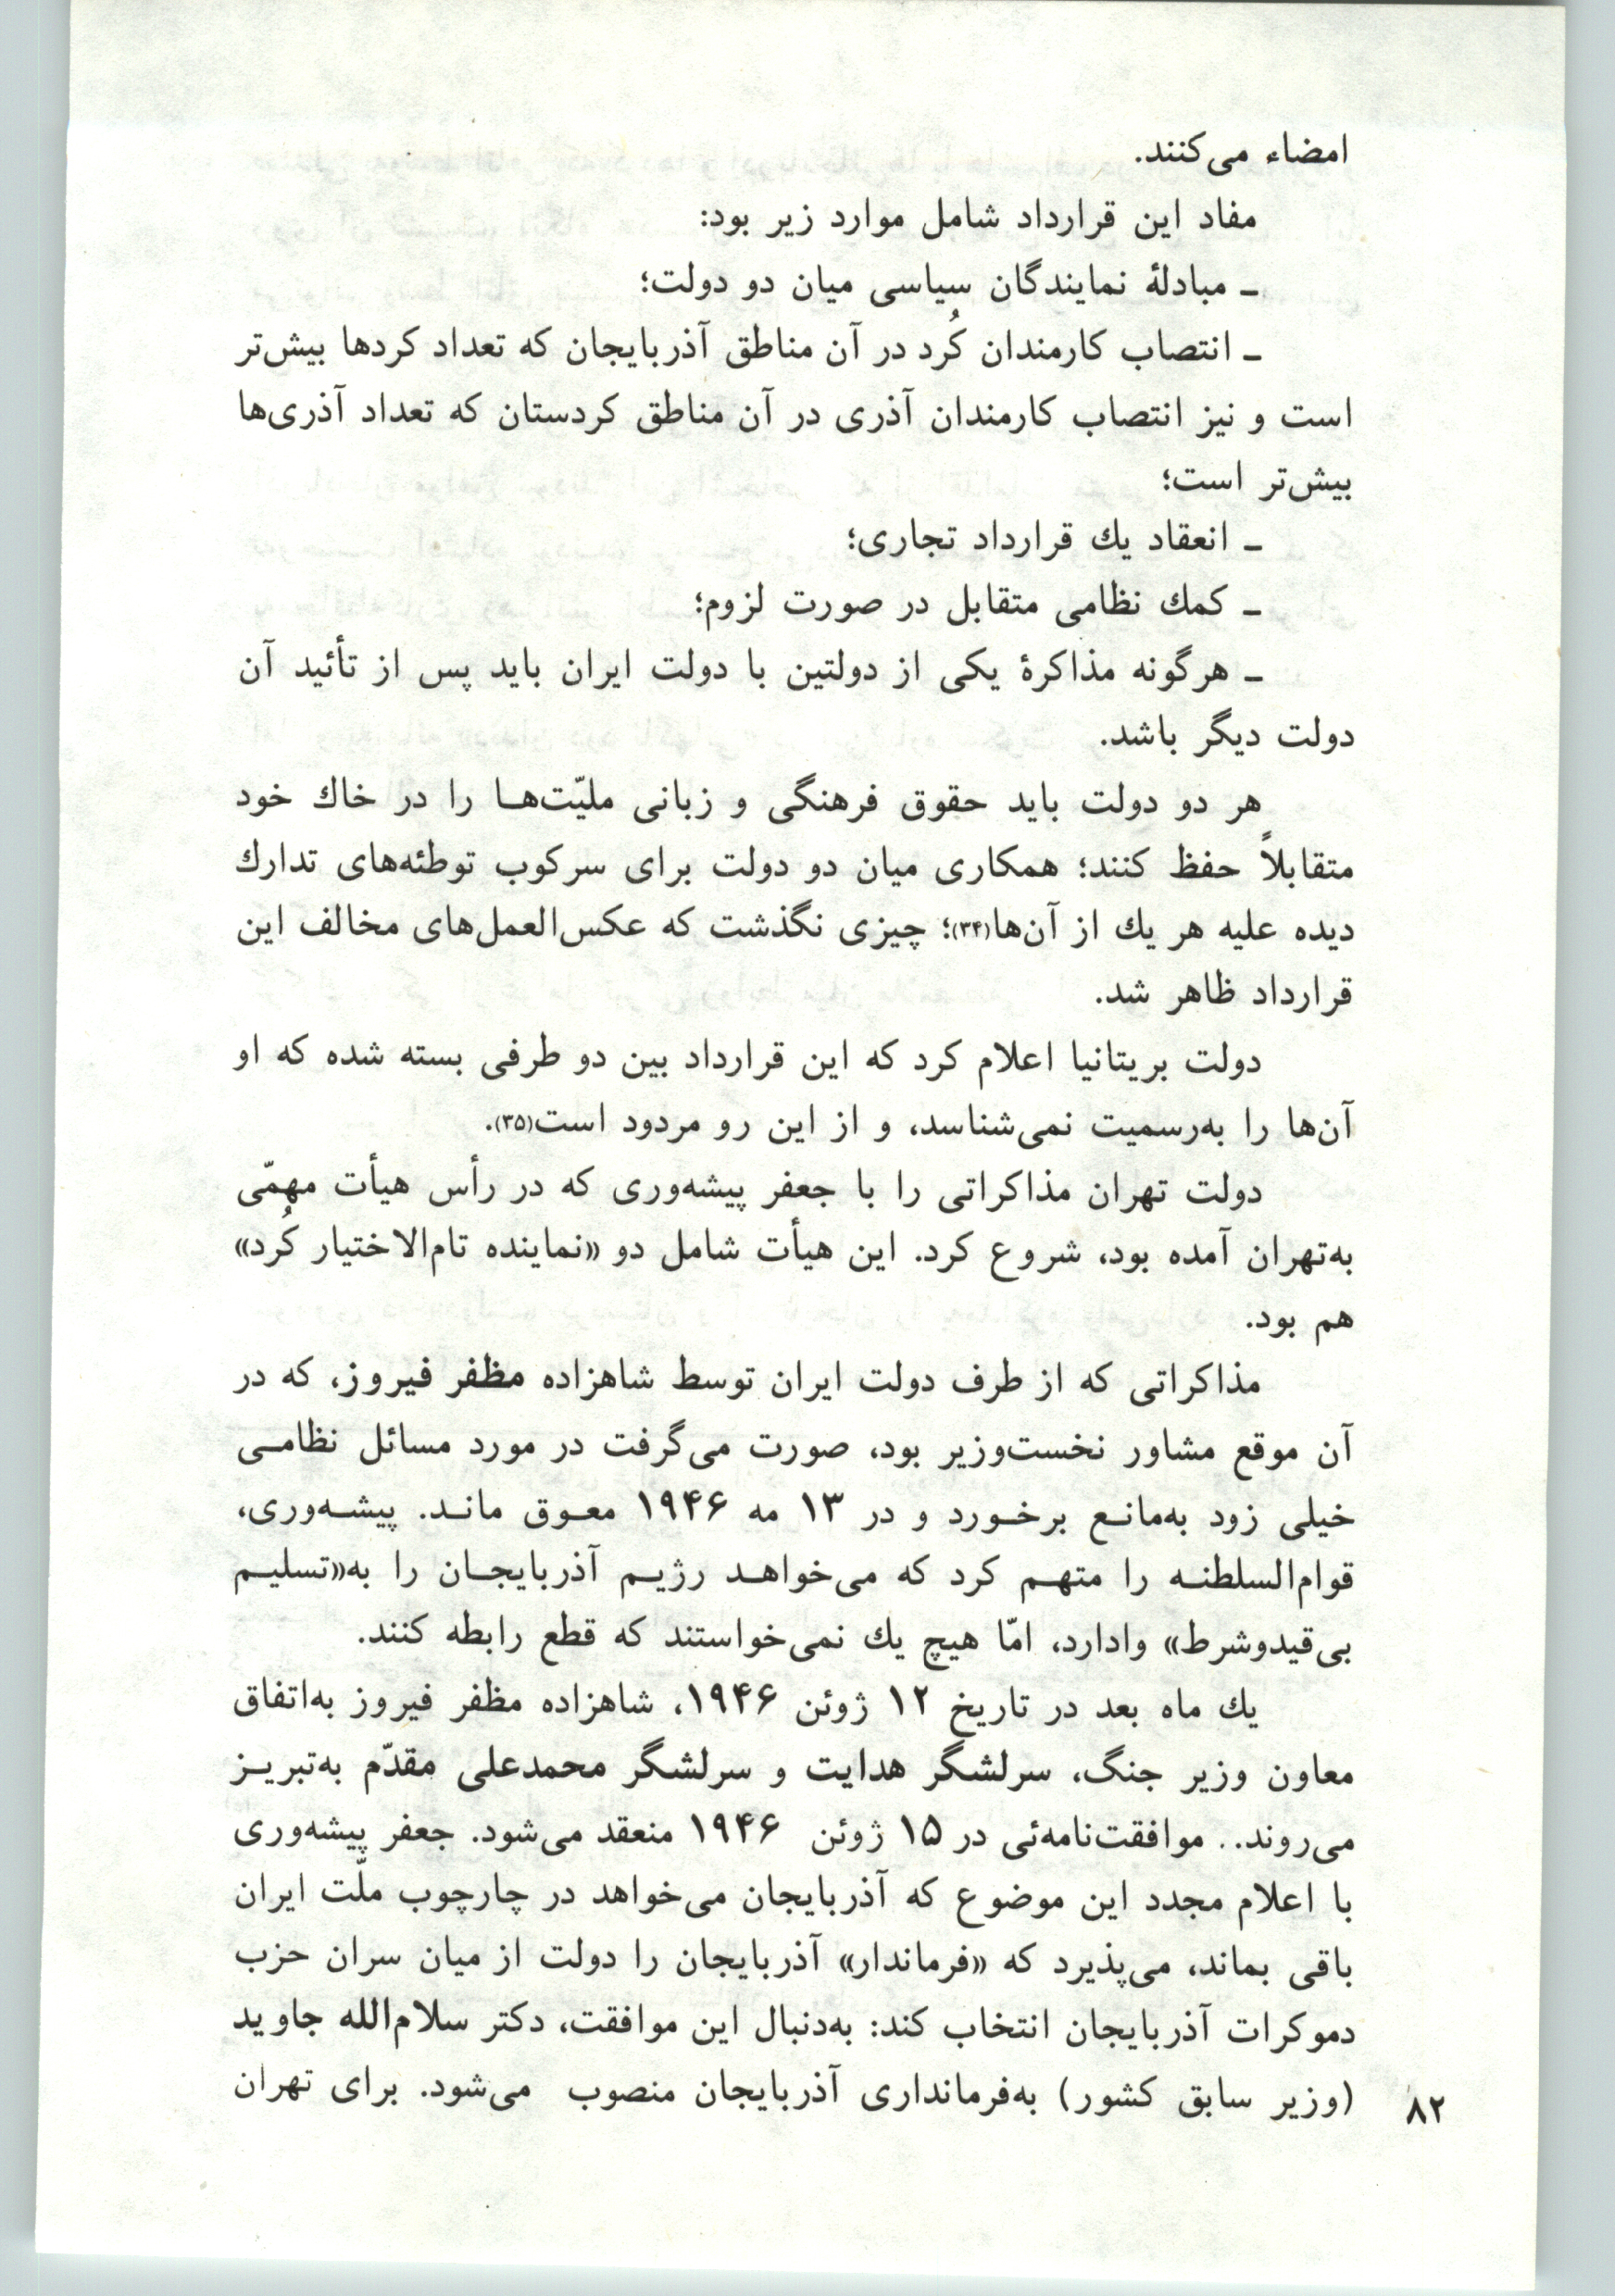 امضاء می‌کنند.
مفاد این قرارداد شامل موارد زیر بود:
ـ مبادلهٔ نمایندگان سیاسی میان دو دولت؛
ـ انتصاب کارمندان کُرد در آن مناطق آذربایجان که تعداد کردها بیش‌تر
است و نیز انتصاب کارمندان آذری در آن مناطق کردستان که تعداد آذری‌ها
بیش‌تر است؛
ـ انعقاد یك قرارداد تجاری؛
ـ کمك نظامی متقابل در صورت لزوم؛
ـ هرگونه مذاکرهٔ یکی از دولتین با دولت ایران باید پس از تأئید آن
دولت دیگر باشد.
هر دو دولت باید حقوق فرهنگی و زبانی ملیّت‌هـا را در خاك خود
متقابلاً حفظ کنند؛ همکاری میان دو دولت برای سرکوب توطئه‌های تدارك
دیده علیه هر یك از آن‌ها(۳۴)؛ چیزی نگذشت که عکس‌العمل‌های مخالف این
قرارداد ظاهر شد.
دولت بریتانیا اعلام کرد که این قرارداد بین دو طرفی بسته شده که او
آن‌ها را به‌رسمیت نمی‌شناسد، و از این رو مردود است(۳۵).
دولت تهران مذاکراتی را با جعفر پیشه‌وری که در رأس هیأت مهمّی
به‌تهران آمده بود، شروع کرد. این هیأت شامل دو «نماینده تام‌الاختیار کُرد»
هم بود.
مذاکراتی که از طرف دولت ایران توسط شاهزاده مظفر فیروز، که در
آن موقع مشاور نخست‌وزیر بود، صورت می‌گرفت در مورد مسائل نظامـی
خیلی زود به‌مانـع برخـورد و در ۱۳ مه ۱۹۴۶ معـوق مانـد. پیشـه‌وری،
قوام‌السلطنـه را متهـم کرد که می‌خواهـد رژیـم آذربایجـان را به«تسلیـم
بی‌قیدوشرط» وادارد، امّا هیچ یك نمی‌خواستند که قطع رابطه کنند.
یك ماه بعد در تاریخ ۱۲ ژوئن ۱۹۴۶، شاهزاده مظفر فیروز به‌اتفاق
معاون وزیر جنگ، سرلشگر هدایت و سرلشگر محمدعلی مقدّم به‌تبریـز
می‌روند.. موافقت‌نامه‌ئی در ۱۵ ژوئن ۱۹۴۶ منعقد می‌شود. جعفر پیشه‌وری
با اعلام مجدد این موضوع که آذربایجان می‌خواهد در چارچوب ملّت ایران
باقی بماند، می‌پذیرد که «فرماندار» آذربایجان را دولت از میان سران حزب
دموکرات آذربایجان انتخاب کند: به‌دنبال این موافقت، دکتر سلام‌الله جاوید
(وزیر سابق کشور) به‌فرمانداری آذربایجان منصوب می‌شود. برای تهران
۸۲